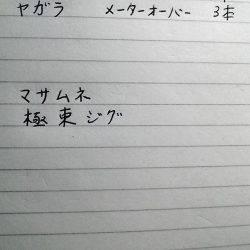 ヤガラ メーターオーバー 3本
マサムネ
極東ジグ